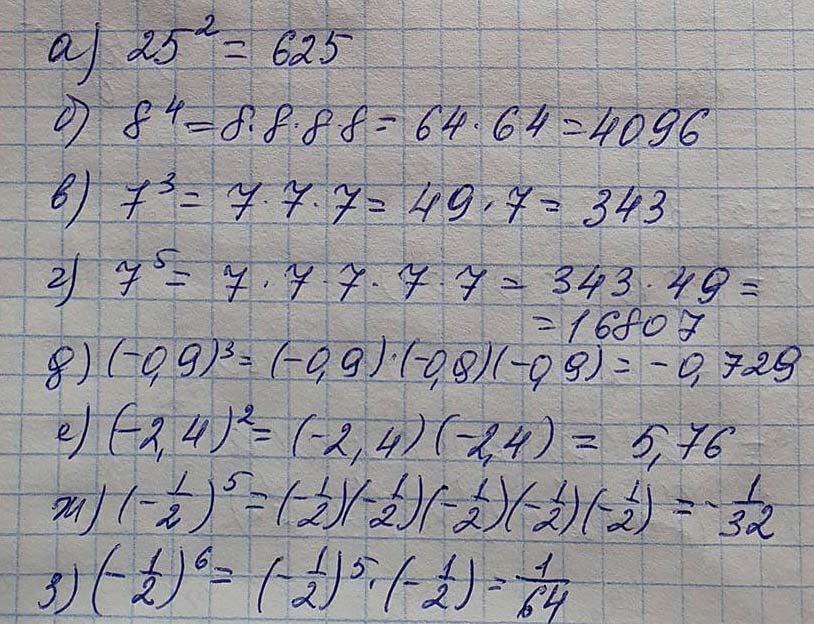 а) 25² = 625
б) 8⁴ = 8·8·8·8 = 64·64 = 4096
в) 7³ = 7·7·7 = 49·7 = 343
г) 7⁵ = 7·7·7·7·7 = 343·49 =
= 16807
д) (-0,9)³ = (-0,9)·(-0,9)(-0,9) = -0,729
е) (-2,4)² = (-2,4)(-2,4) = 5,76
ж) (-1/2)⁵ = (-1/2)(-1/2)(-1/2)(-1/2)(-1/2) = -1/32
з) (-1/2)⁶ = (-1/2)⁵·(-1/2) = 1/64